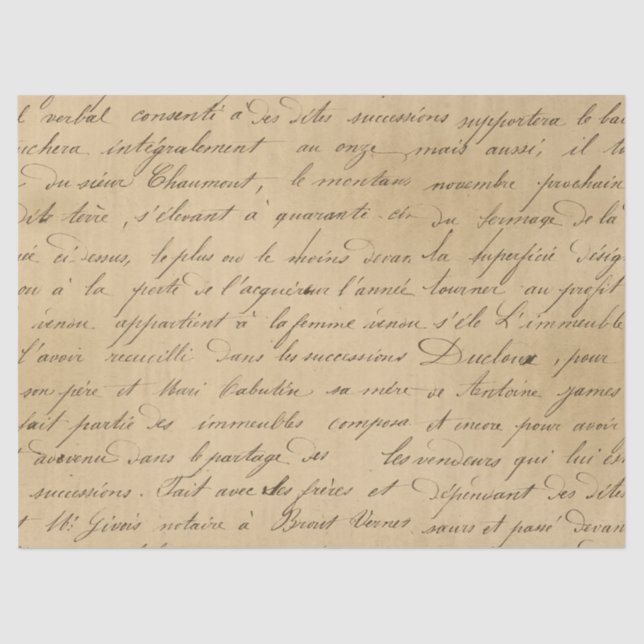 verbal consenti à des dites successions supportera le bai
uchera intégralement au onze, mais aussi, il to
du sieur Chaumont, le montans novembre prochain
dite terre, s'élevant à quarante-cin du fermage de la
ci-dessus, le plus ou le moins devan la superficié désig
ou à la perte de l'acquéreur l'année tourner au profit
venou appartient à la femme venou s'éle L'immeuble
l'avoir recueilli dans les successions Ducloux, pour
son père et Mari Cabutin sa mère de Antoine James
fait partie des immeubles composa et encore pour avoir
avevenu dans le partage des les vendeurs qui lui es
successions. Fait avec les frères et dépendant des dites
Mr. Givois notaire à Brout Vernes sœurs et passé devan